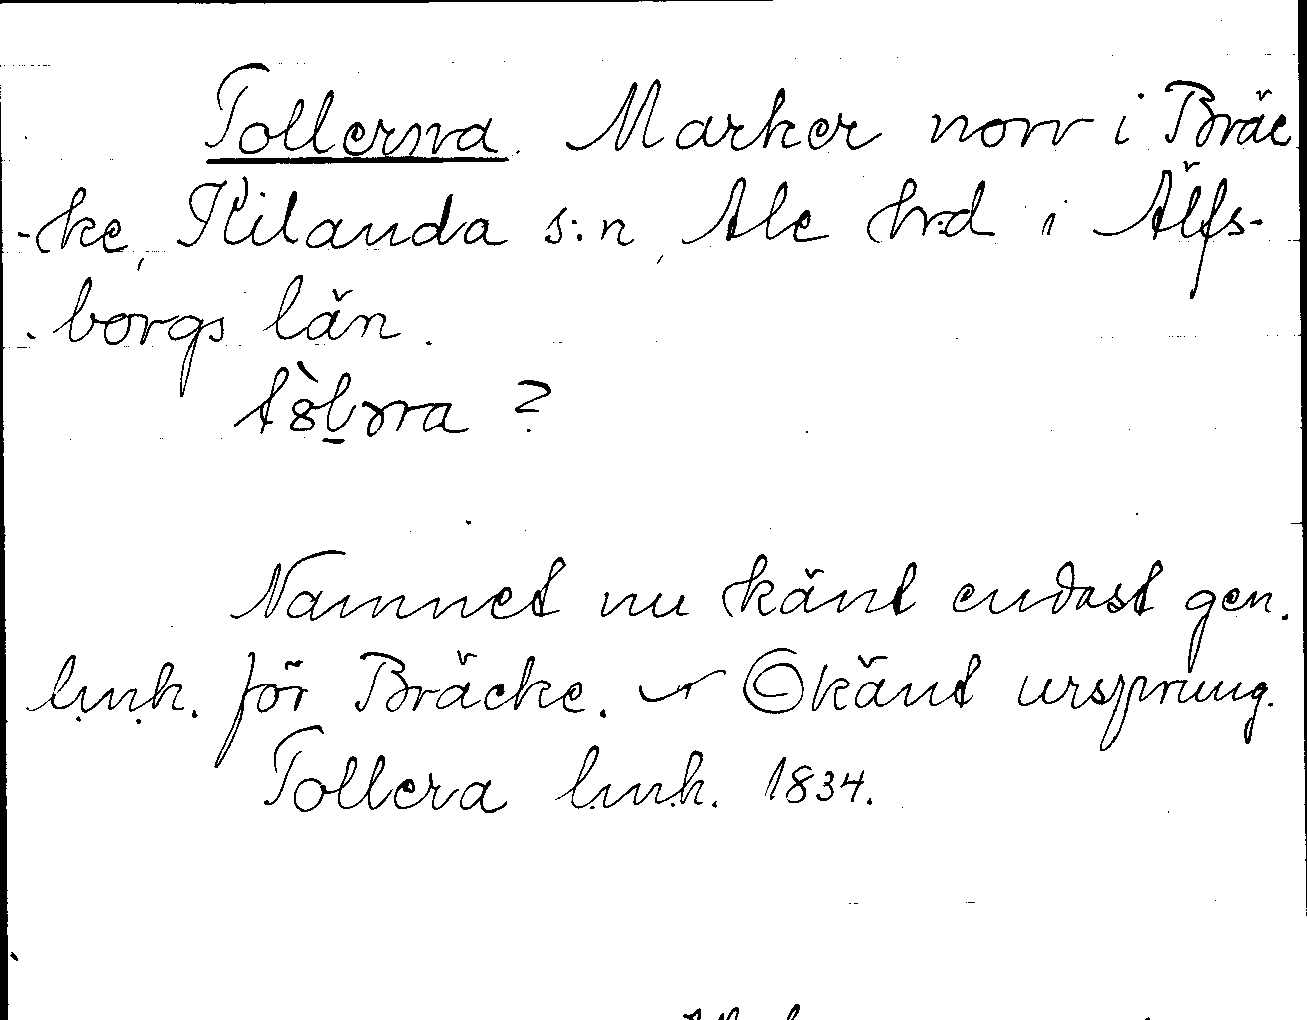 Tollerna. Marker norr i Bräc
-ke, Kilanda s:n, Ale hrd i Älfs-
borgs län.
Namnet nu känt endast gen.
l.m.h. för Bräcke. Okänt ursprung.
Tollera l.m.h. 1834.